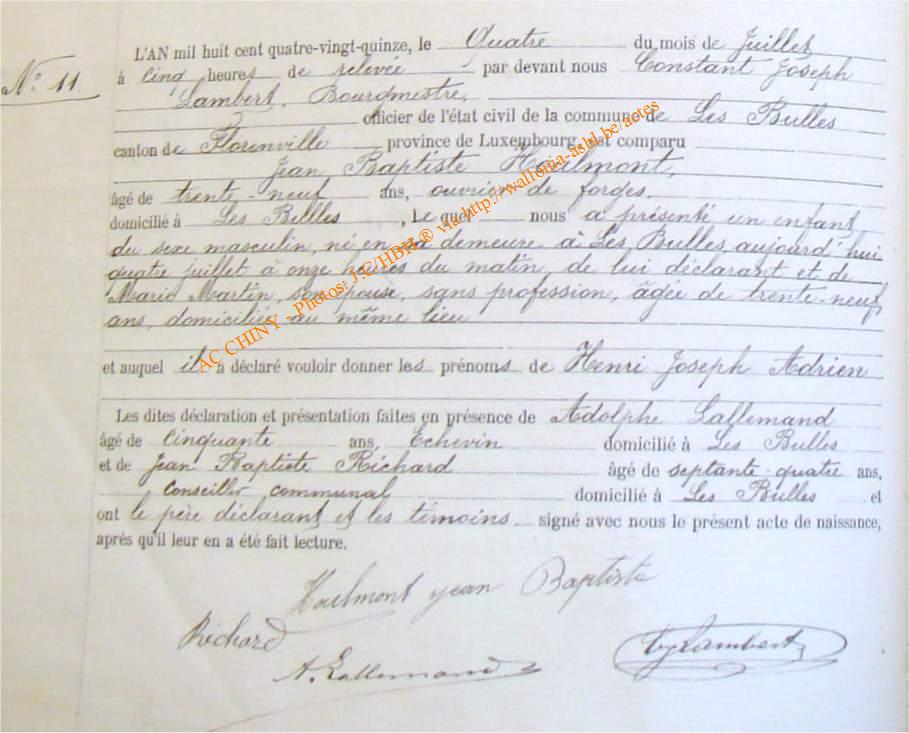 N° 11
L'AN mil huit cent quatre-vingt-quinze, le Quatre du mois de Juillet
à Cinq heures de relevée par devant nous Constant Joseph
Lambert, Bourgmestre,
officier de l'état civil de la commune de Les Bulles
canton de Florenville province de Luxembourg, est comparu
Jean Baptiste Houlmont,
âgé de trente-neuf ans, ouvrier de forges,
domicilié à Les Bulles, Le quel nous a présenté un enfant
du sexe masculin, né en sa demeure à Les Bulles aujourd'hui
quatre juillet à onze heures du matin, de lui déclarant et de
Marie Martin, son épouse, sans profession, âgée de trente-neuf
ans, domiciliée au même lieu
et auquel il a déclaré vouloir donner les prénoms de Henri Joseph Adrien
Les dites déclaration et présentation faites en présence de Adolphe Lallemand
âgé de Cinquante ans, Echevin domicilié à Les Bulles
et de Jean Baptiste Richard âgé de septante-quatre ans,
Conseiller communal domicilié à Les Bulles et
ont le père déclarant et les témoins signé avec nous le présent acte de naissance,
après qu'il leur en a été fait lecture.
Houlmont jean Baptiste
Richard
A. Lallemand
Lambert
AC CHINY - Photos: J.C/HBH® via http://wallonia-asbl.be/actes